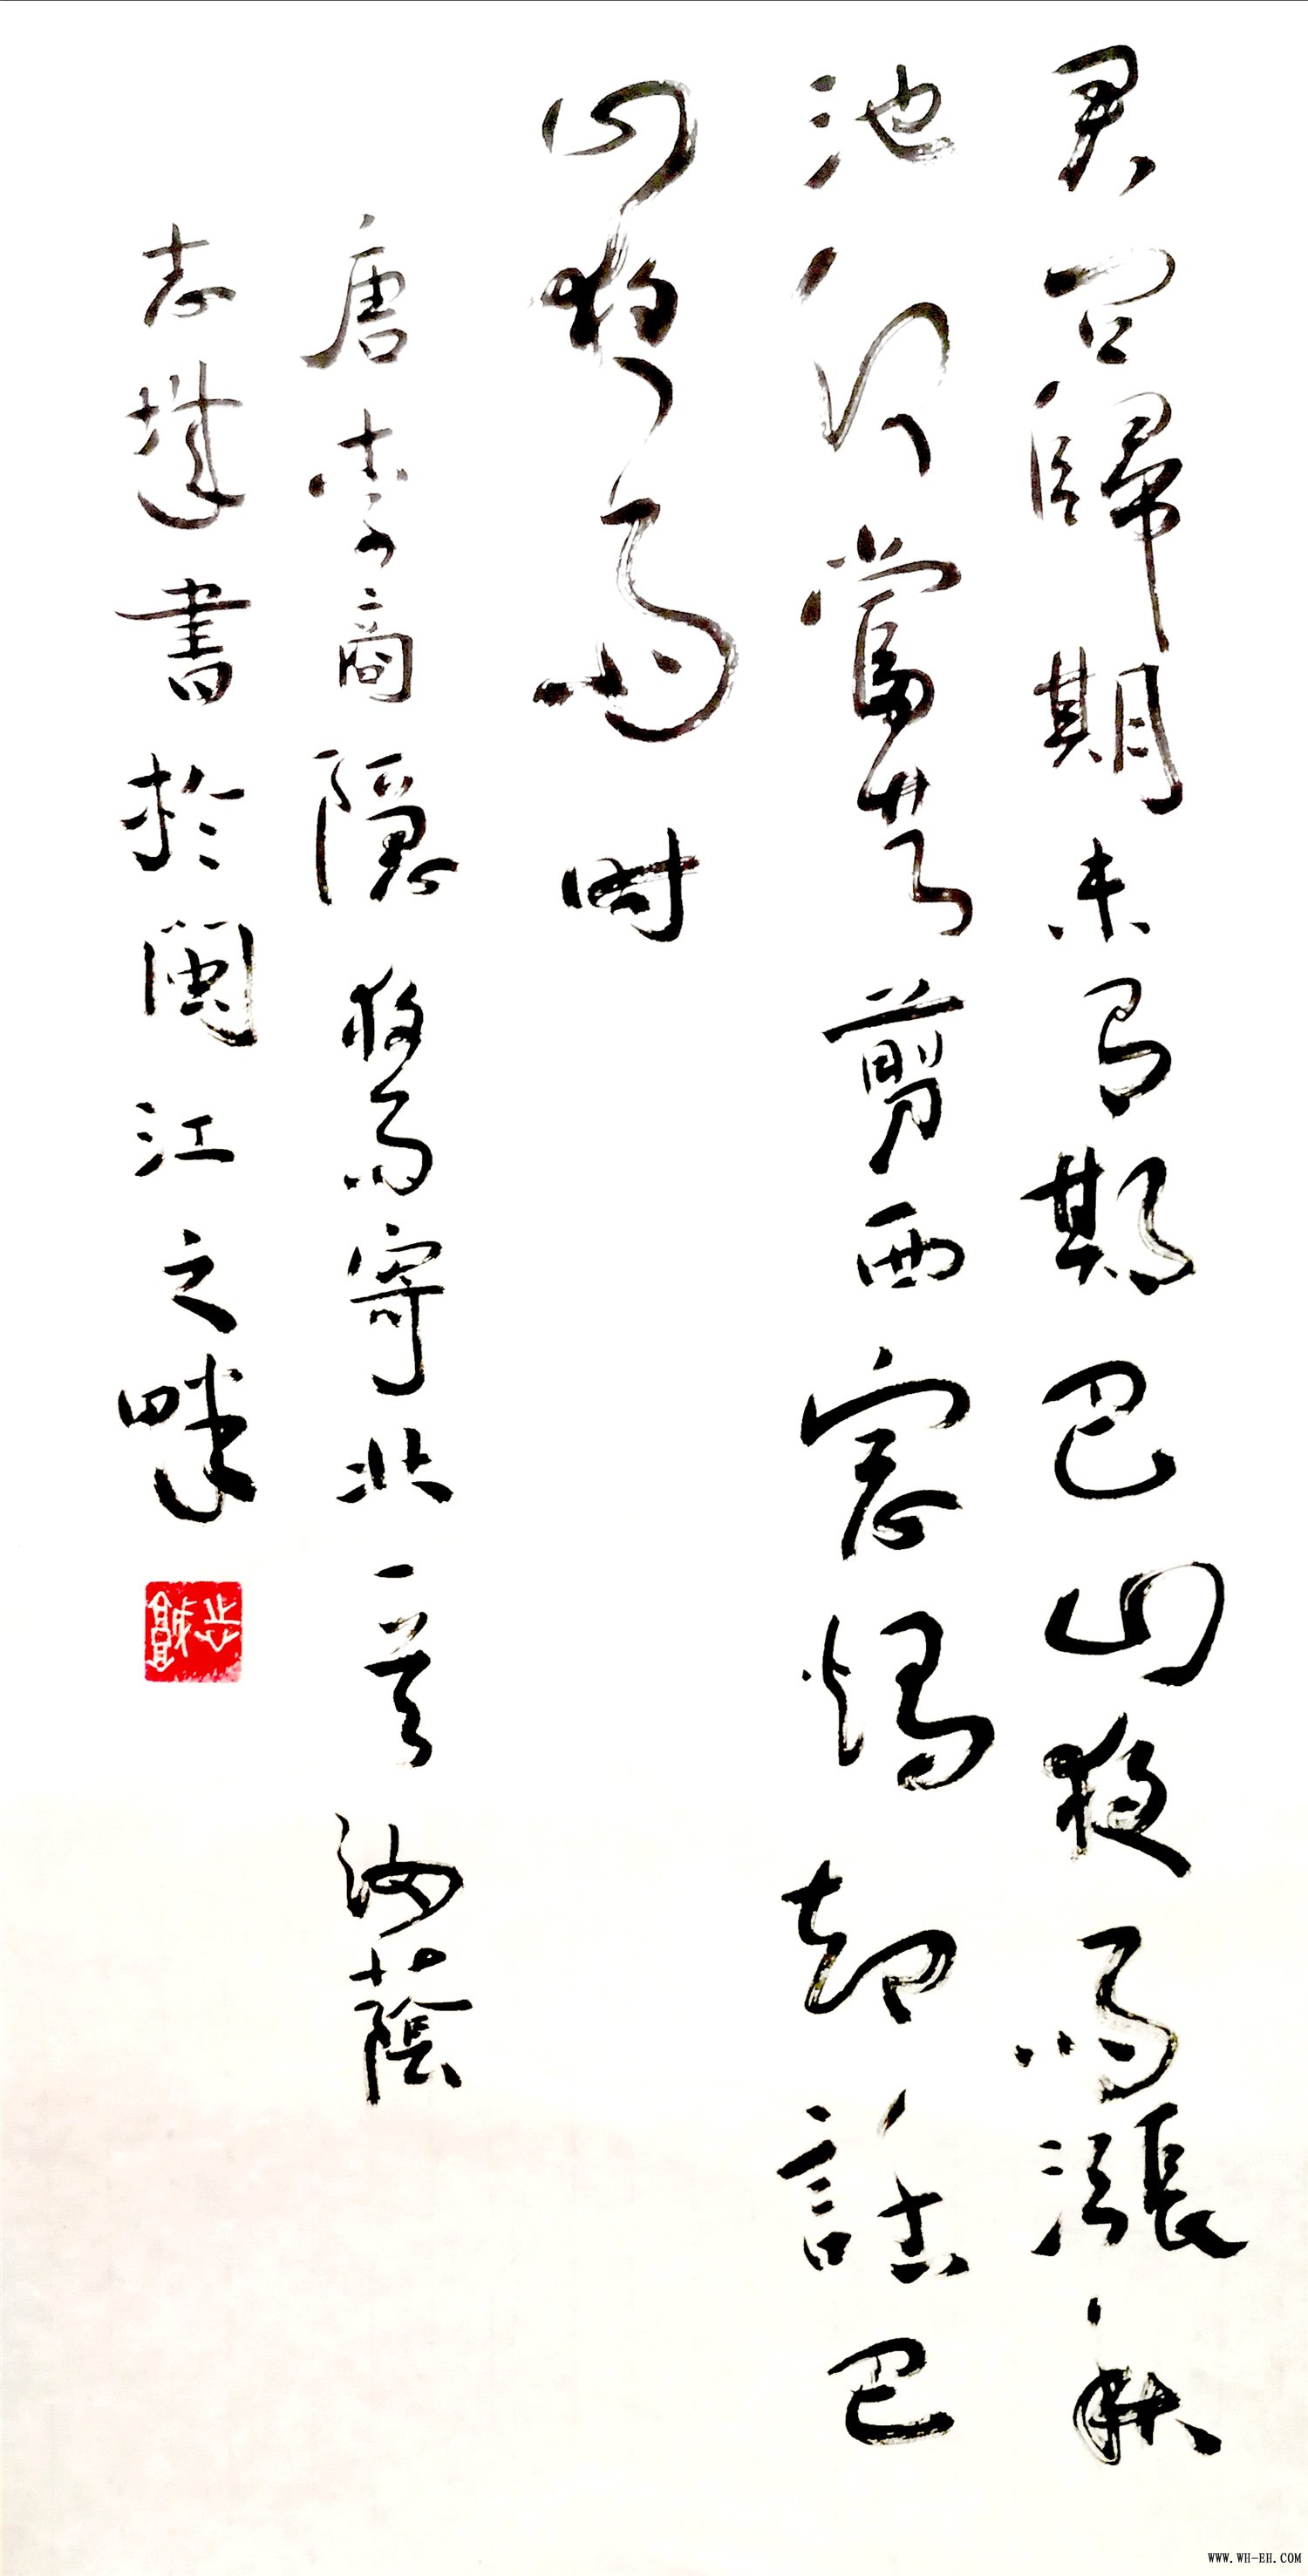 君問歸期未有期巴山夜雨漲秋
池何當共剪西窗燭却話巴
山夜雨時
唐李商隱夜雨寄北一首汝蔭
志書於閩江之畔
WWW.WH-EH.COM